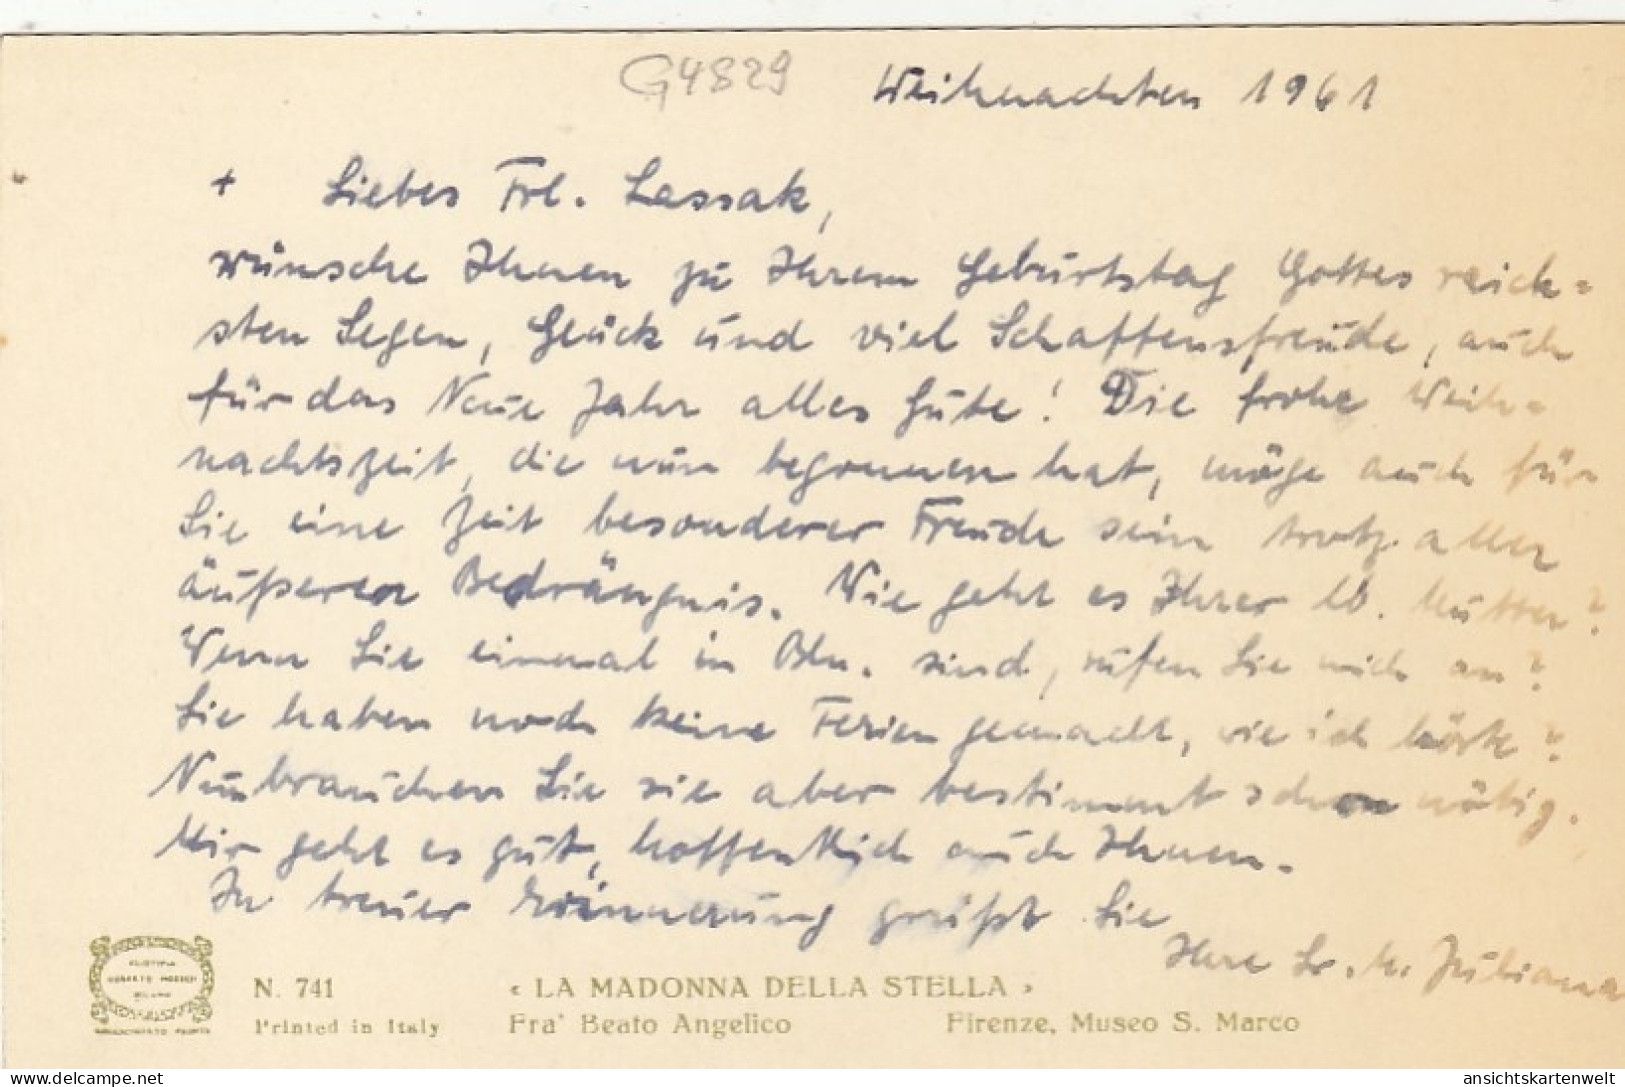 G4829
Weihnachten 1961
+ Liebes Frl. Lassak,
wünsche Ihnen zu Ihrem Geburtstag Gottes reich-
sten Segen, Glück und viel Schaffensfreude, auch
für das Neue Jahr alles Gute! Die frohe Weih-
nachtszeit, die nun begonnen hat, möge auch für
Sie eine Zeit besonderer Freude sein trotz aller
äußeren Bedrängnis. Wie geht es Ihrer lb. Mutter?
Wenn Sie einmal in Bln. sind, rufen Sie mich an?
Sie haben noch keine Ferien gemacht, wie ich hörte?
Nun brauchen Sie sie aber bestimmt schon nötig.
Mir geht es gut, hoffentlich auch Ihnen.
In treuer Erinnerung grüßt Sie
Ihre Sr. M. Juliana
N. 741
Printed in Italy
« LA MADONNA DELLA STELLA »
Fra' Beato Angelico
Firenze, Museo S. Marco
delcampe.net
ansichtskartenwelt